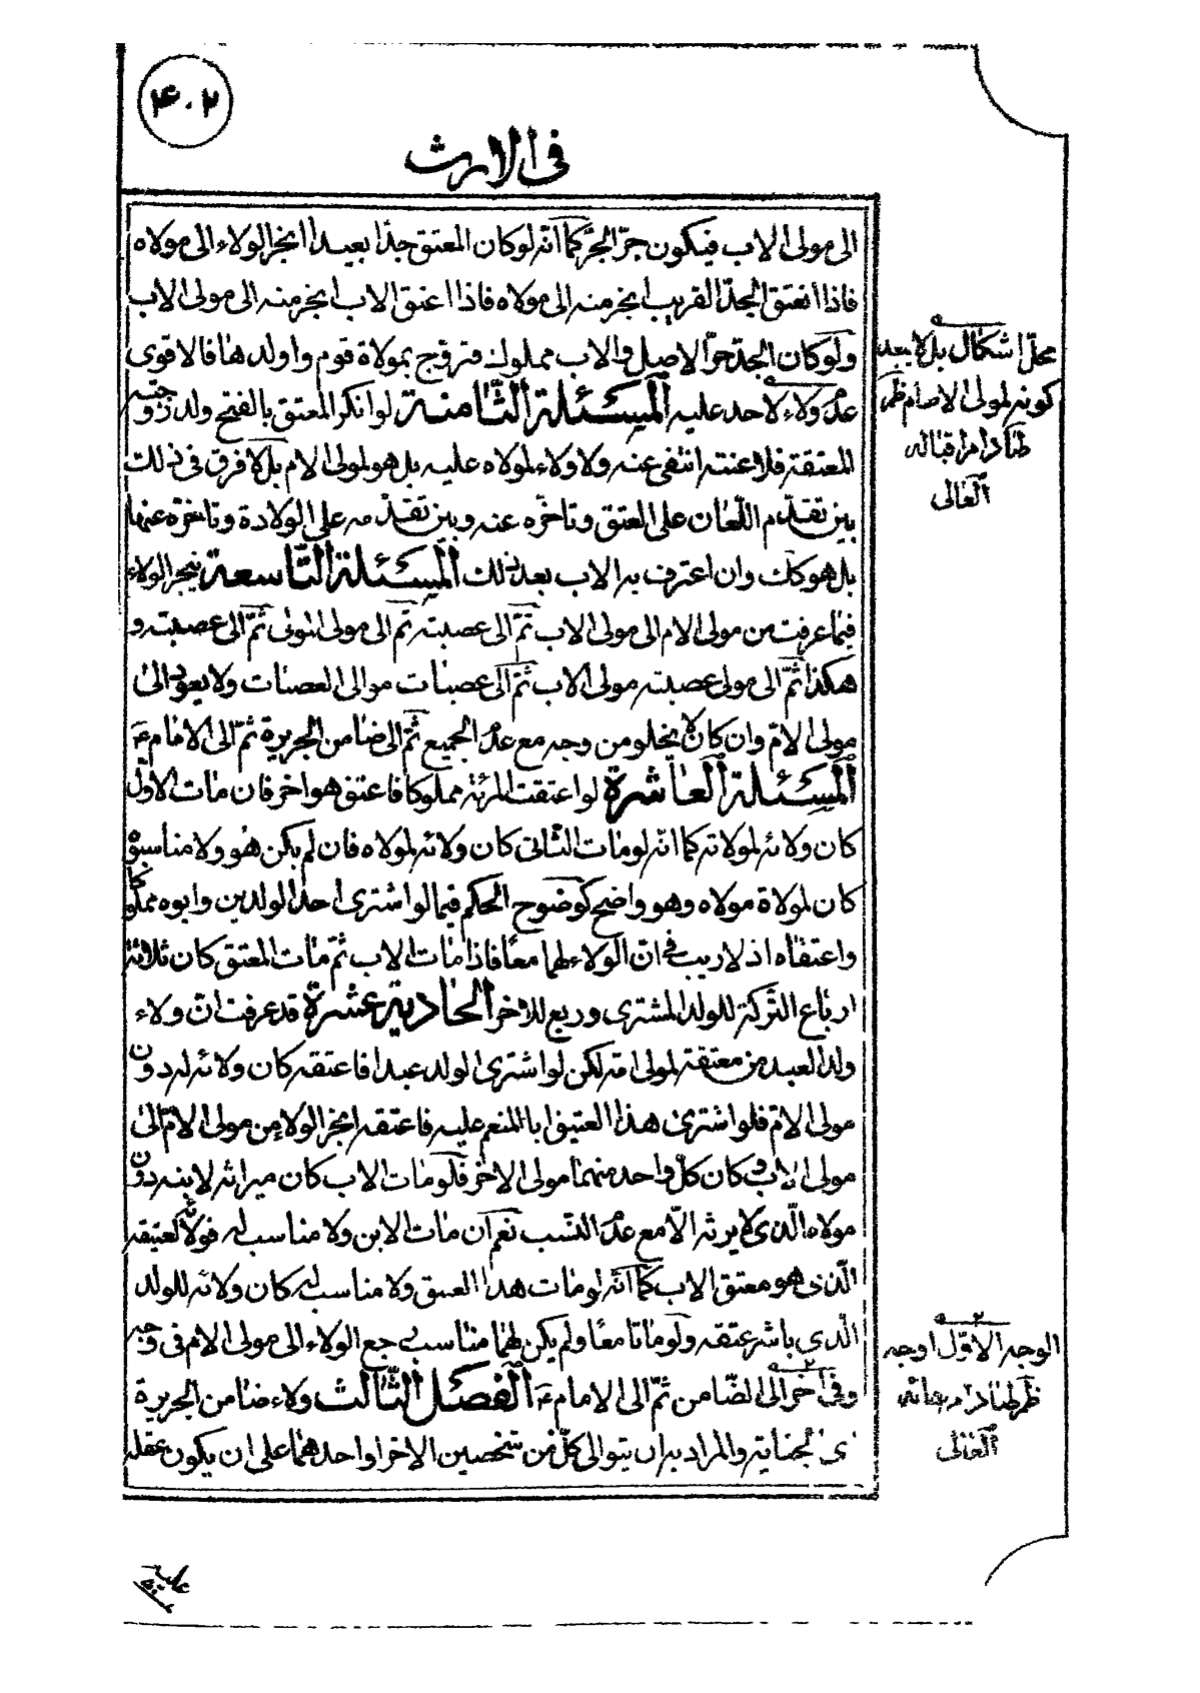 ۴۰۲
فى الارث
الى مولى الاب فيكون جرّ الجرّ كما انّه لو كان المعتق جدّا بعيدا انجرّ الولاء الى مولاه
فاذا انعتق الجدّ القريب انجر منه الى مولاه فاذا اعتق الاب انجر منه الى مولى الاب
ولو كان الجدّ حرّ الاصل و الاب مملوك فتزوّج بمولاة قوم و اولدها فالاقوى
عدم ولاء لاحد عليه المسئلة الثّامنة لو انكر المعتق بالفتح ولد زوجته
المعتقة فلاعنته انتفى عنه و لا ولاء لمولاه عليه بل هو لمولى الام بل لا فرق فى ذلك
بين تقدّم اللّعان على العتق و تاخّره عنه و بين تقدّمه على الولادة و تاخّره عنها
بل هو كك و ان اعترف به الاب بعد ذلك المسئلة التّاسعة ينجر الولاء
فيما عرفت من مولى الام الى مولى الاب ثمّ الى عصبته ثمّ الى مولى المولى ثمّ الى عصبته و
هكذا ثمّ الى مولى عصبته مولى الاب ثمّ الى عصبات موالى العصبات و لا يعود الى
مولى الامّ و ان كان لا يخلو من وجه مع عدم الجميع ثمّ الى ضامن الجريرة ثمّ الى الامام ع
المسئلة العاشرة لو اعتقت المرئة مملوكا فاعتق هو اخر فان مات الاوّل
كان ولائه لمولاته كما انّه لو مات الثّانى كان ولائه لمولاه فان لم يكن هو و لا مناسبوه
كان لمولاة مولاه و هو واضح كوضوح الحكم فيما لو اشترى احد الولدين و ابوه مملوكا
و اعتقاه اذ لا ريب فى انّ الولاء لهما معًا فاذا مات الاب ثمّ مات المعتق كان ثلاثة
ارباع التّركة للولد المشترى و ربع للاخر الحادية عشرة قد عرفت انّ ولاء
ولد العبد من معتقة لمولى امّه لكن لو اشترى الولد عبدا فاعتقه كان ولائه له دون
مولى الامّ فلو اشترى هذا العتيق ابا المنعم عليه فاعتقه انجر الولاء من مولى الامّ الى
مولى الاب و كان كلّ واحد منهما مولى الاخر فلو مات الاب كان ميراثه لابنه دون
مولاه الّذى لا يرثه الّا مع عدم النّسب نعم ان مات الابن و لا مناسب له فولائه لعتيقه
الّذى هو معتق الاب كما انّه لو مات هذا العتيق و لا مناسب له كان ولائه للولد
الّذى باشر عتقه و لو ماتا معًا و لم يكن لهما مناسب رجع الولاء الى مولى الام فى وجه
و فى اخر الى الضّامن ثمّ الى الامام ع الفصل الثّالث ولاء ضامن الجريرة
اى الجناية و المراد به ان يتوالى كلّ من شخصين الاخر او احدهما على ان يكون عقله
محلّ اشكال بل لا يبعد
كونه لمولى الام
العالى
۲
الوجه الاوّل اوجه
العالى
عليه